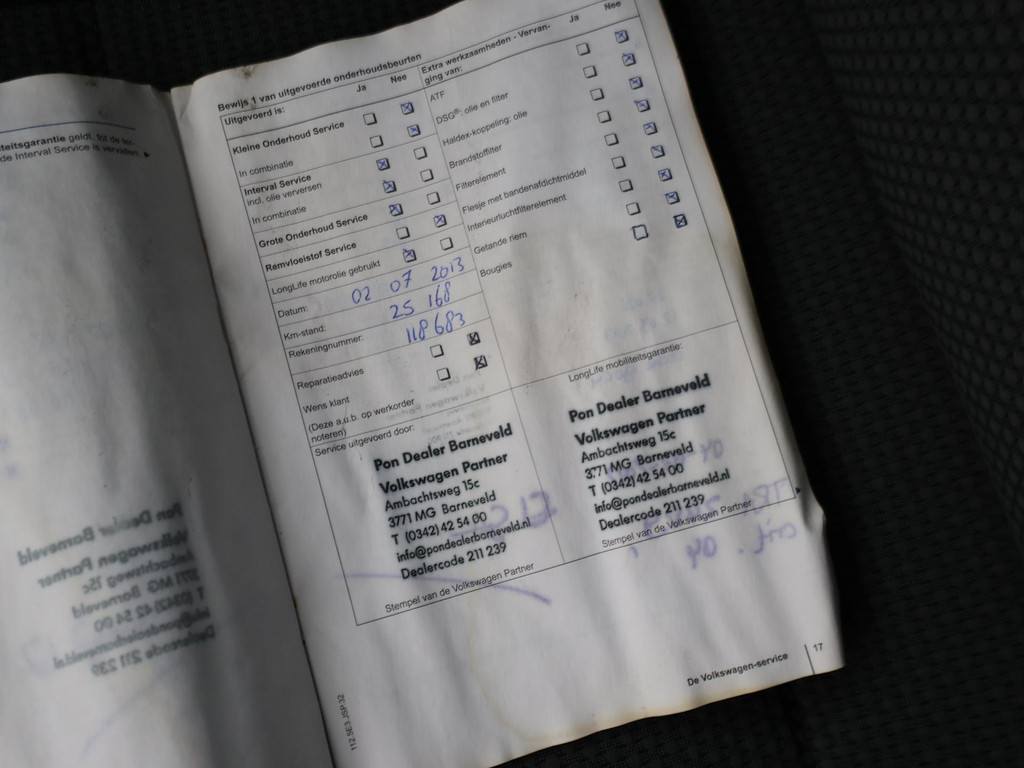 teitsgarantie geldt, tot de
de Interval Service is vervallen. ▶
Bewijs 1 van uitgevoerde onderhoudsbeurten
Uitgevoerd is: Ja Nee
Kleine Onderhoud Service
In combinatie
Interval Service
incl. olie verversen
In combinatie
Grote Onderhoud Service
Remvloeistof Service
LongLife motorolie gebruikt
Datum: 02 07 2013
Km-stand: 25 168
Rekeningnummer: 118 683
Reparatieadvies
Wens klant
(Deze a.u.b. op werkorder
noteren)
Extra werkzaamheden - Vervan-
ging van: Ja Nee
ATF
DSG®: olie en filter
Haldex-koppeling: olie
Brandstoffilter
Filterelement
Flesje met bandenafdichtmiddel
Interieurluchtfilterelement
Getande riem
Bougies
Service uitgevoerd door:
Pon Dealer Barneveld
Volkswagen Partner
Ambachtsweg 15c
3771 MG Barneveld
T (0342) 42 54 00
info@pondealerbarneveld.nl
Dealercode 211 239
Stempel van de Volkswagen Partner
LongLife mobiliteitsgarantie:
Pon Dealer Barneveld
Volkswagen Partner
Ambachtsweg 15c
3771 MG Barneveld
T (0342) 42 54 00
info@pondealerbarneveld.nl
Dealercode 211 239
Stempel van de Volkswagen Partner
De Volkswagen-service 17
112.5E3.JSP.32
Pon Dealer Barneveld
Volkswagen Partner
Ambachtsweg 15c
3771 MG Barneveld
T (0342) 42 54 00
info@pondealerbarneveld.nl
Dealercode 211 239